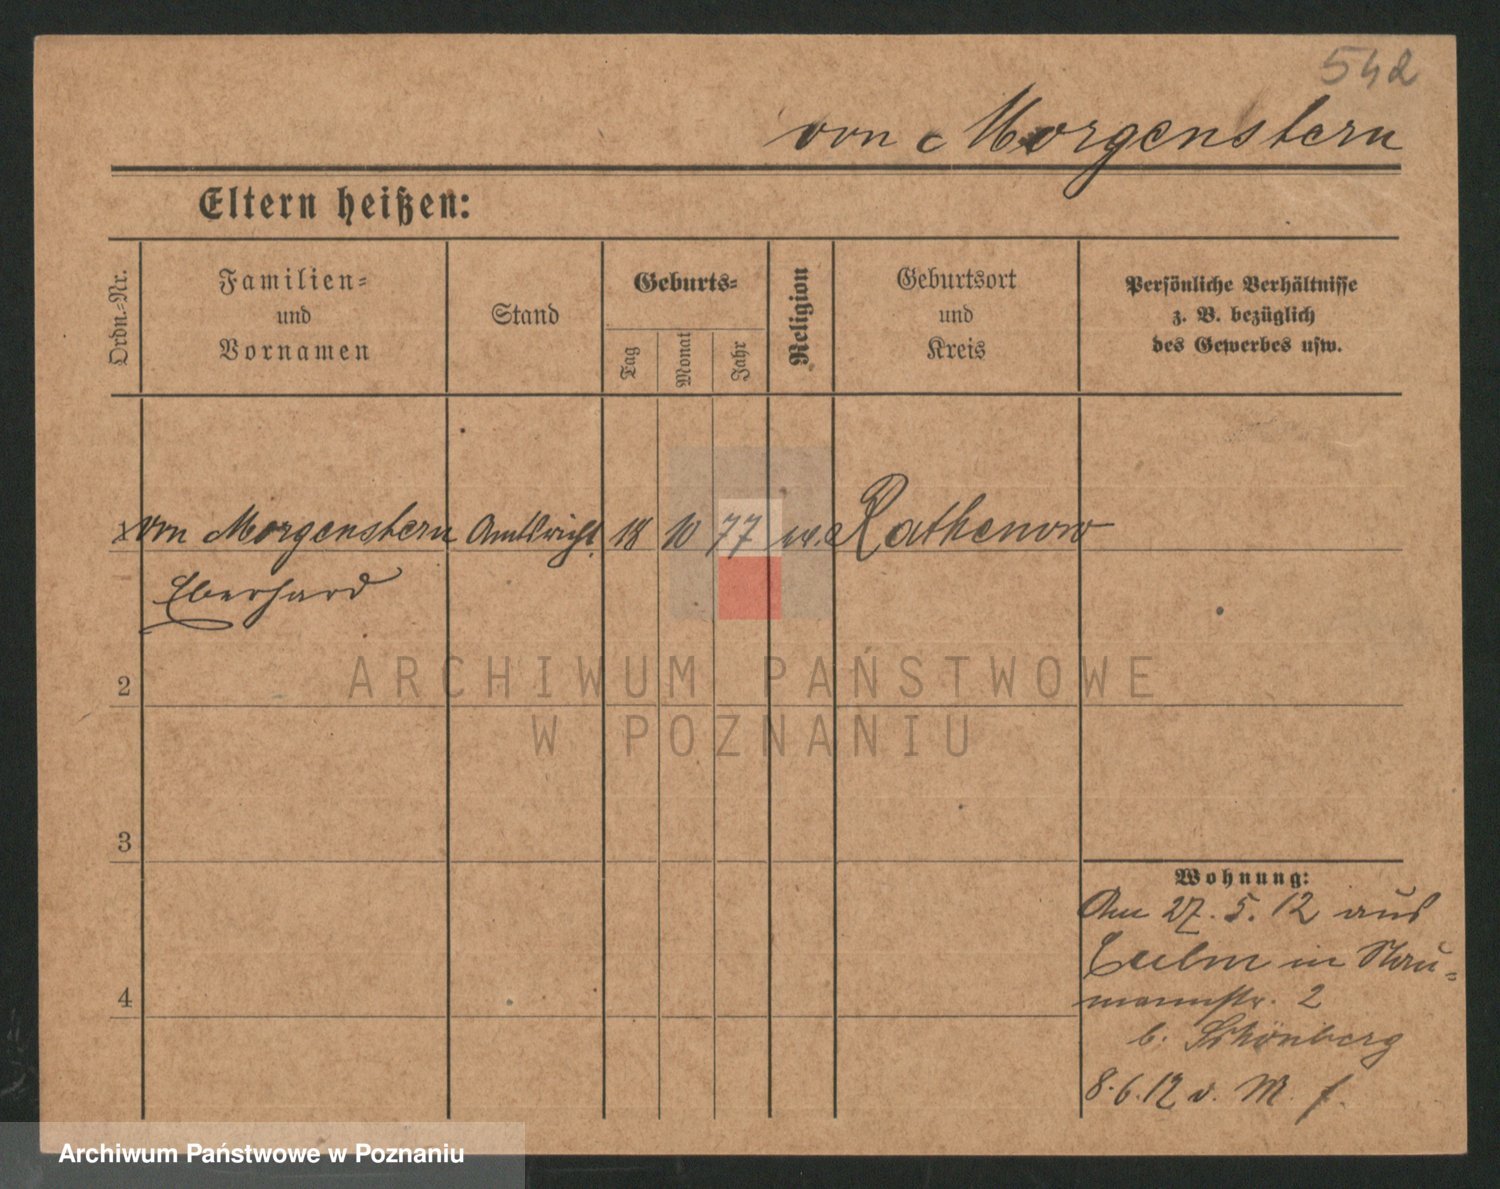 542
von Morgenstern
Eltern heißen:
Ordn.-Nr.
Familien-
und
Vornamen
Stand
Geburts-
Tag
Monat
Jahr
Religion
Geburtsort
und
Kreis
Persönliche Verhältnisse
z. B. bezüglich
des Gewerbes usw.
von Morgenstern Amtsricht. 18 10 77 ev. Rathenow
Eberhard
2
ARCHIWUM PAŃSTWOWE
W POZNANIU
3
Wohnung:
Am 27. 5. 12 aus
Culm in Nau-
mannstr. 2
b. Schönberg
8.6.12 v. M. f.
4
Archiwum Państwowe w Poznaniu